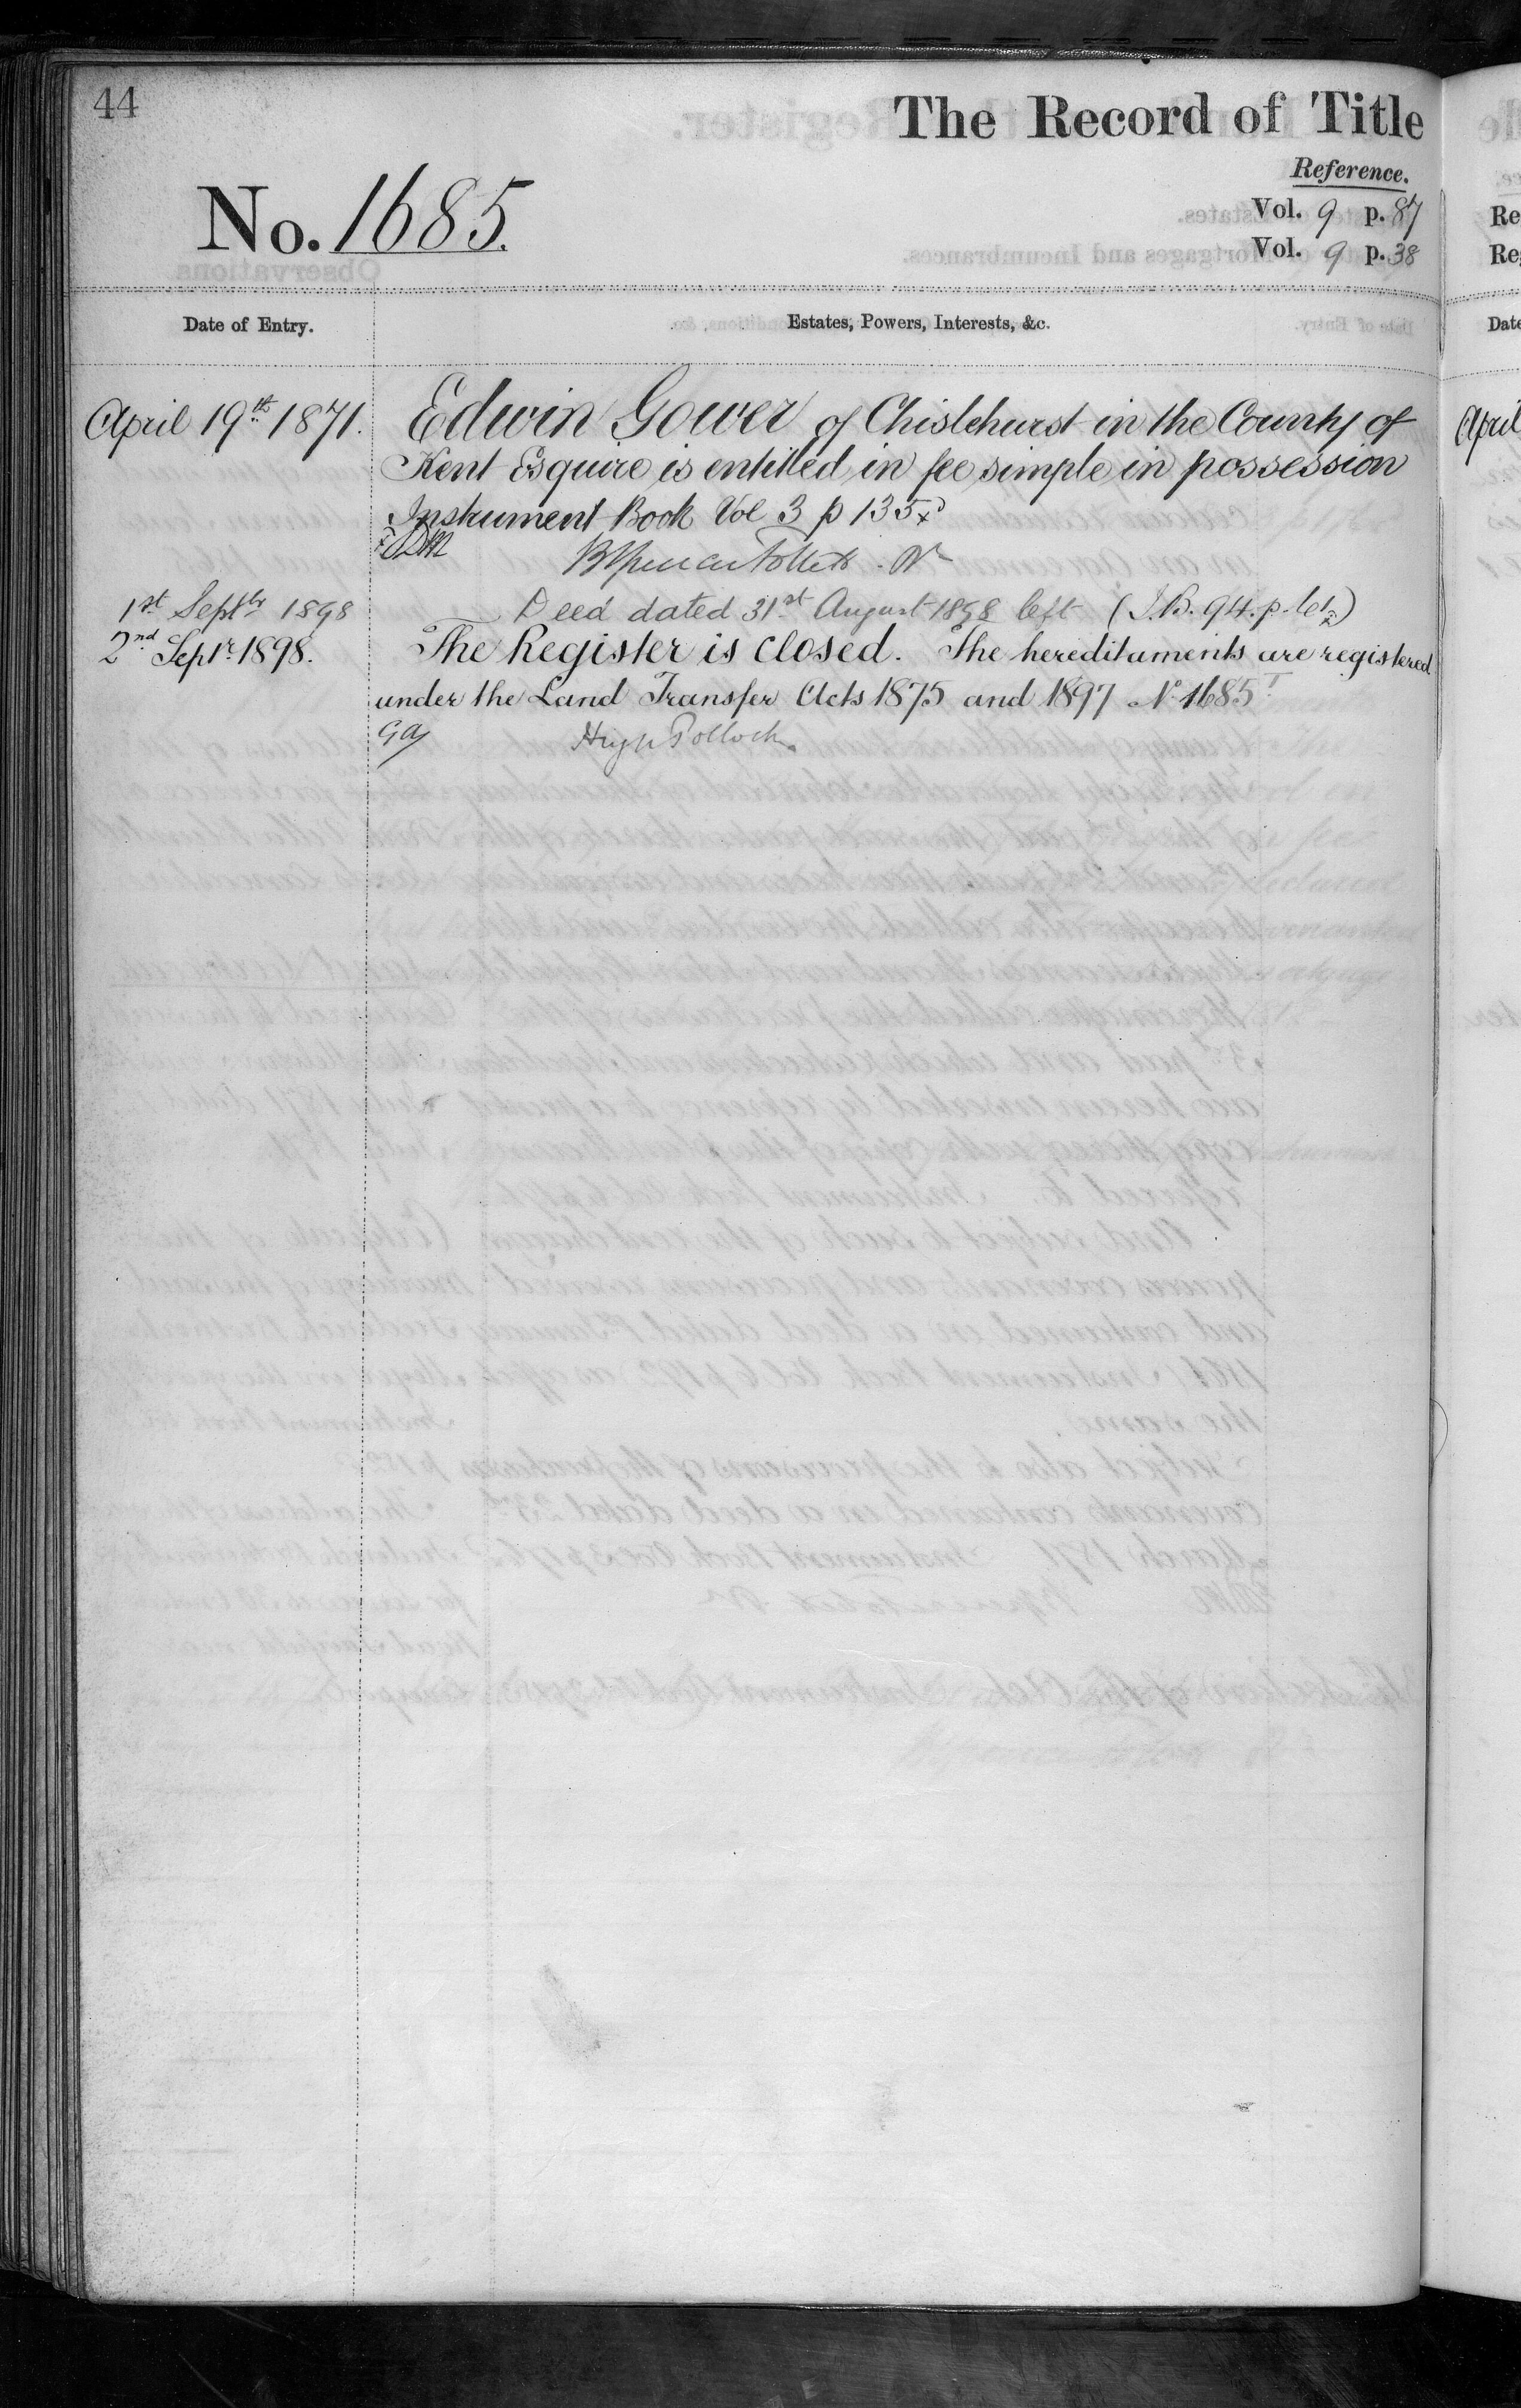 44
The Record of Title
Reference.
No. 1685.
Vol. 9 p. 87
Vol. 9 p. 38
Date of Entry.
Estates, Powers, Interests, &c.
April 19th 1871. Edwin Gower of Chislehurst in the County of
Kent Esquire is entitled in fee simple in possession
Instrument Book Vol 3 p 135
1st Septbr 1898 Deed dated 31st August 1898 left (I.B. 94. p.
2nd Septr 1898. The Register is closed. The hereditaments are registered
under the Land Transfer Acts 1875 and 1897 No 1685T
Hugh Pollock.
Re
Re
Date
April